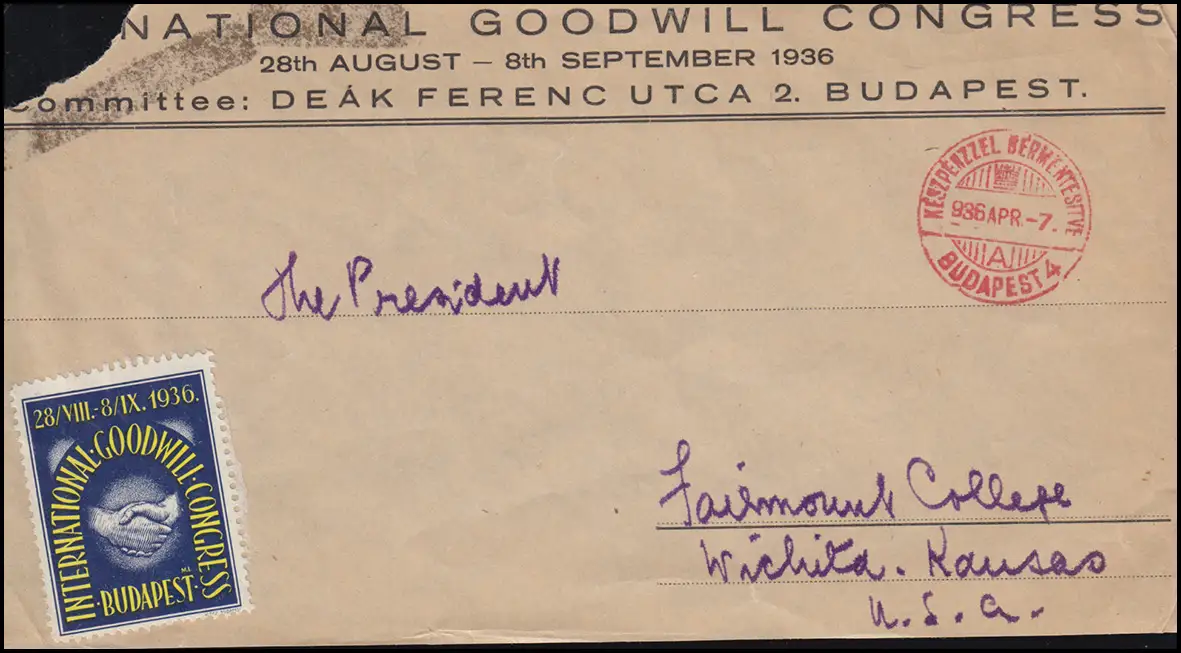 NATIONAL GOODWILL CONGRESS
28th AUGUST – 8th SEPTEMBER 1936
Committee: DEÁK FERENC UTCA 2. BUDAPEST.
KÉSZPÉNZZEL BÉRMENTESÍTVE
936 APR.-7.
A
BUDAPEST 4
The President
28/VIII.-8/IX.1936.
INTERNATIONAL·GOODWILL·CONGRESS
·BUDAPEST·
Fairmount College
Wichita. Kansas
U.S.A.